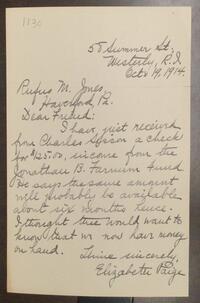 1130
58 Summer St,
Westerly, R.I.
Oct. 19, 1914.
Rufus M. Jones,
Haverford, Pa.
Dear Friend:
I have just received
from Charles Sisson a check
for $125.00, income from the
Jonathan B. Farnum Fund.
He says the same amount
will probably be available
about six months hence.
I thought thee would want to
know that we now have money
on hand.
Thine sincerely,
Elizabeth Paige